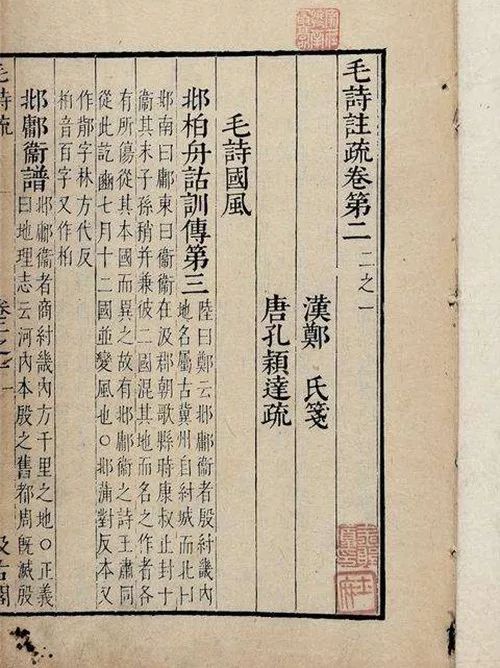 毛詩註疏卷第二 二之一
漢鄭 氏箋
唐孔穎達疏
毛詩國風
邶柏舟詁訓傳第三 陸曰鄭云邶鄘衞者殷紂畿內
地名屬古冀州自紂城而北曰
邶南曰鄘東曰衞衞在汲郡朝歌縣時康叔止封十
衞其末子孫稍并兼彼二國混其地而名之作者各
有所傷從其本國而異之故有邶鄘衞之詩王肅同
從此訖豳七月十二國並變風也○邶蒲對反本又
作鄁字林方代反
柏音百字又作栢
邶鄘衞譜 邶鄘衞者商紂畿內方千里之地○正義
曰地理志云河內本殷之舊都周旣滅殷
毛詩疏